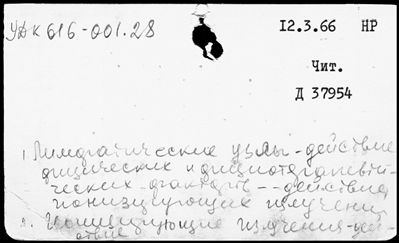 УДК 616-001.28
12.3.66 НР
Чит.
Д 37954
1. Лимфатические узлы - действие
физических и физиотерапевти-
ческих факторов -- действие
ионизирующих излучений
2. Ионизирующие излучения - дей-
ствие